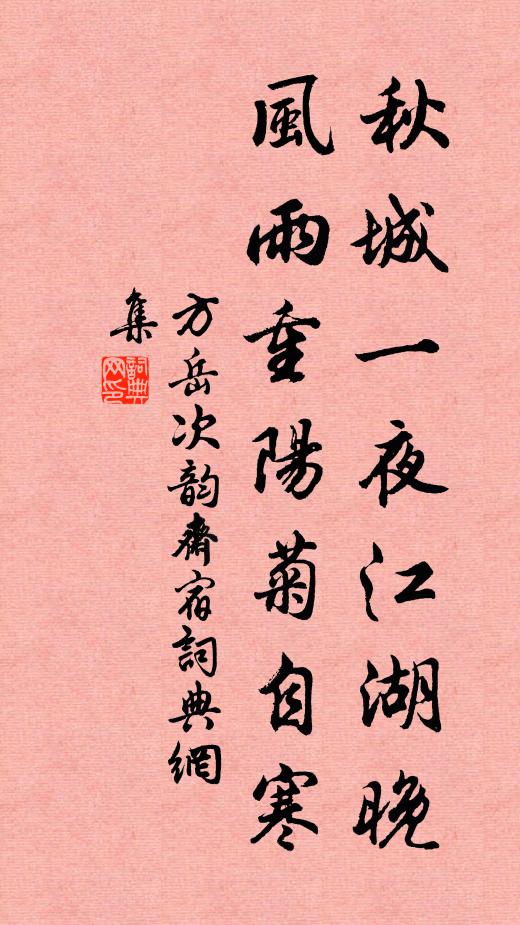 秋城一夜江湖晚
風雨重陽菊自寒
方岳次韵齋宿詞典網
集
詞典网印